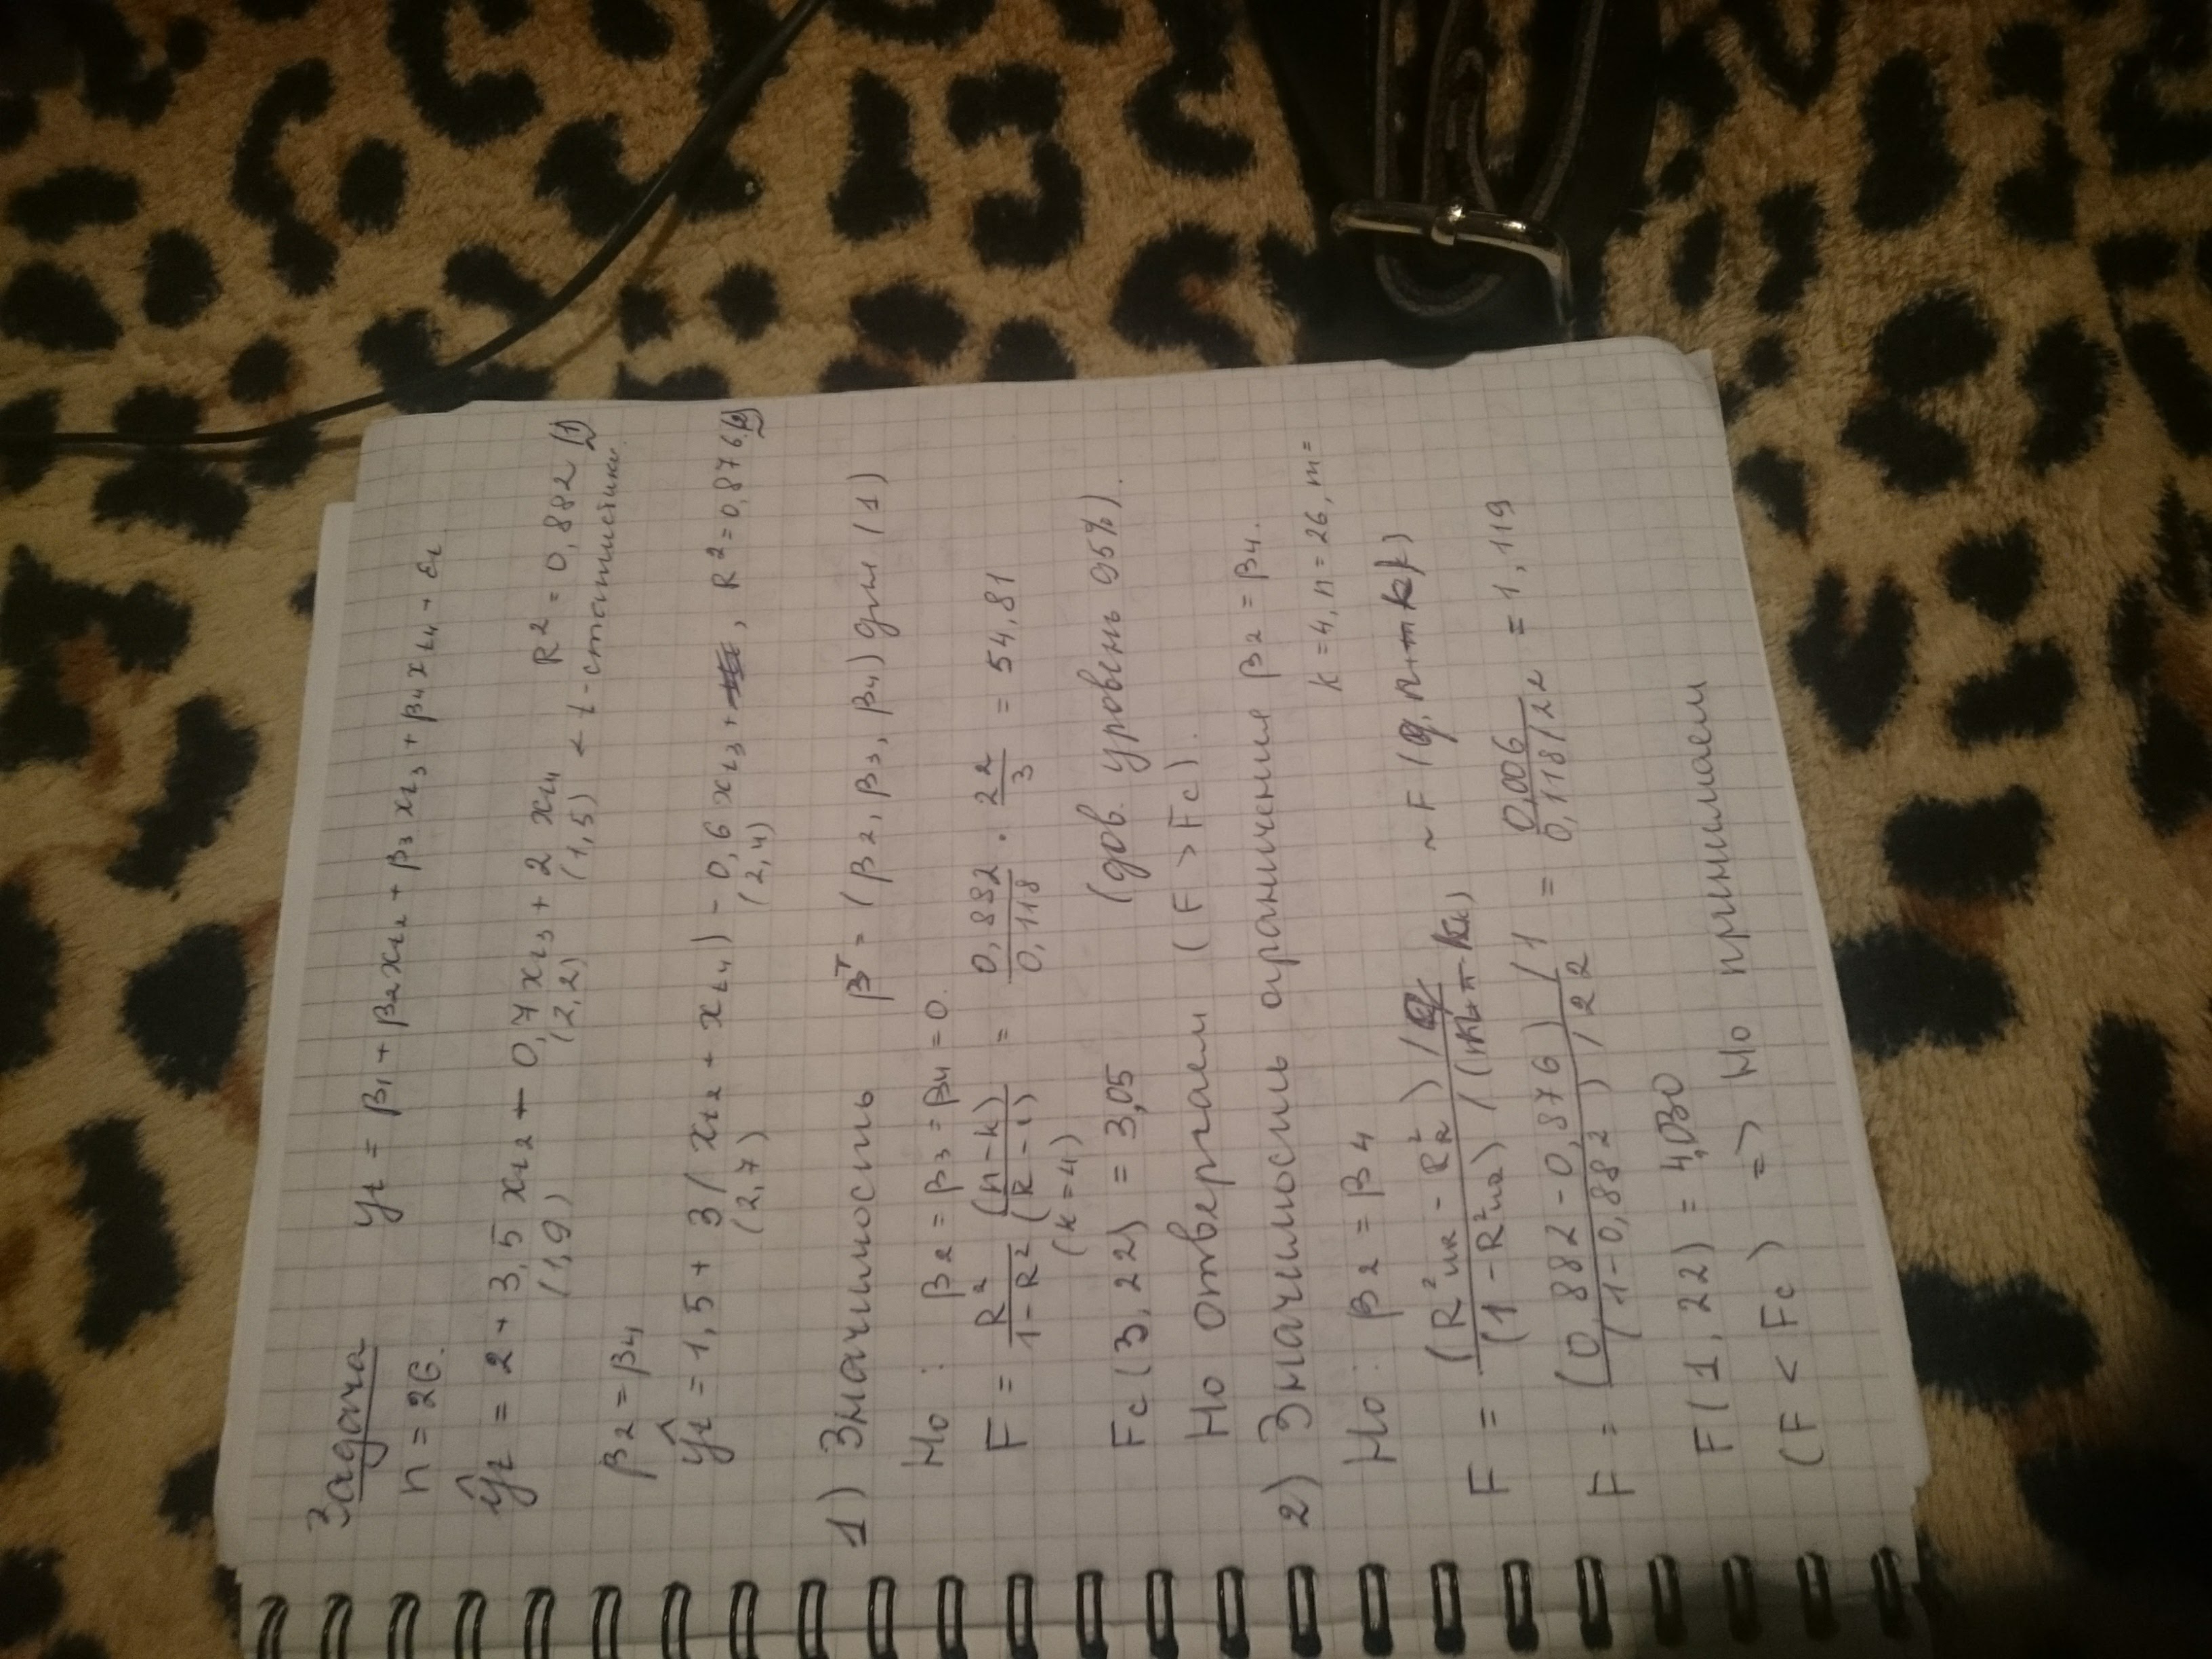 Задача yt = β1 + β2xt2 + β3xt3 + β4xt4 + εt
n = 26.
ŷt = 2 + 3,5 xt2 - 0,7 xt3 + 2 xt4 R² = 0,882 (1)
(1,9) (2,2) (1,5) < t-статистики.
β2 = β4
ŷt = 1,5 + 3 (xt2 + xt4) - 0,6 xt3 + , R² = 0,876 (2)
(2,7) (2,4)
1) Значимость βᵀ = (β2, β3, β4) для (1)
H0: β2 = β3 = β4 = 0.
F = R²/(1-R²) (n-k)/(k-1) = 0,882/0,118 · 22/3 = 54,81
(k=4)
Fc (3, 22) = 3,05 (дов. уровень 95%).
H0 отвергаем (F > Fc).
2) Значимость ограничения β2 = β4.
k = 4, n = 26, m =
H0: β2 = β4
F = (R² - R²R) / q / (1 - R²) / ~ F (q,
F = (0,882 - 0,876) / 1 / (1 - 0,882) / 22 = 0,006 / 0,118/22 = 1,119
F (1, 22) = 4,030
(F < Fc) => H0 принимаем